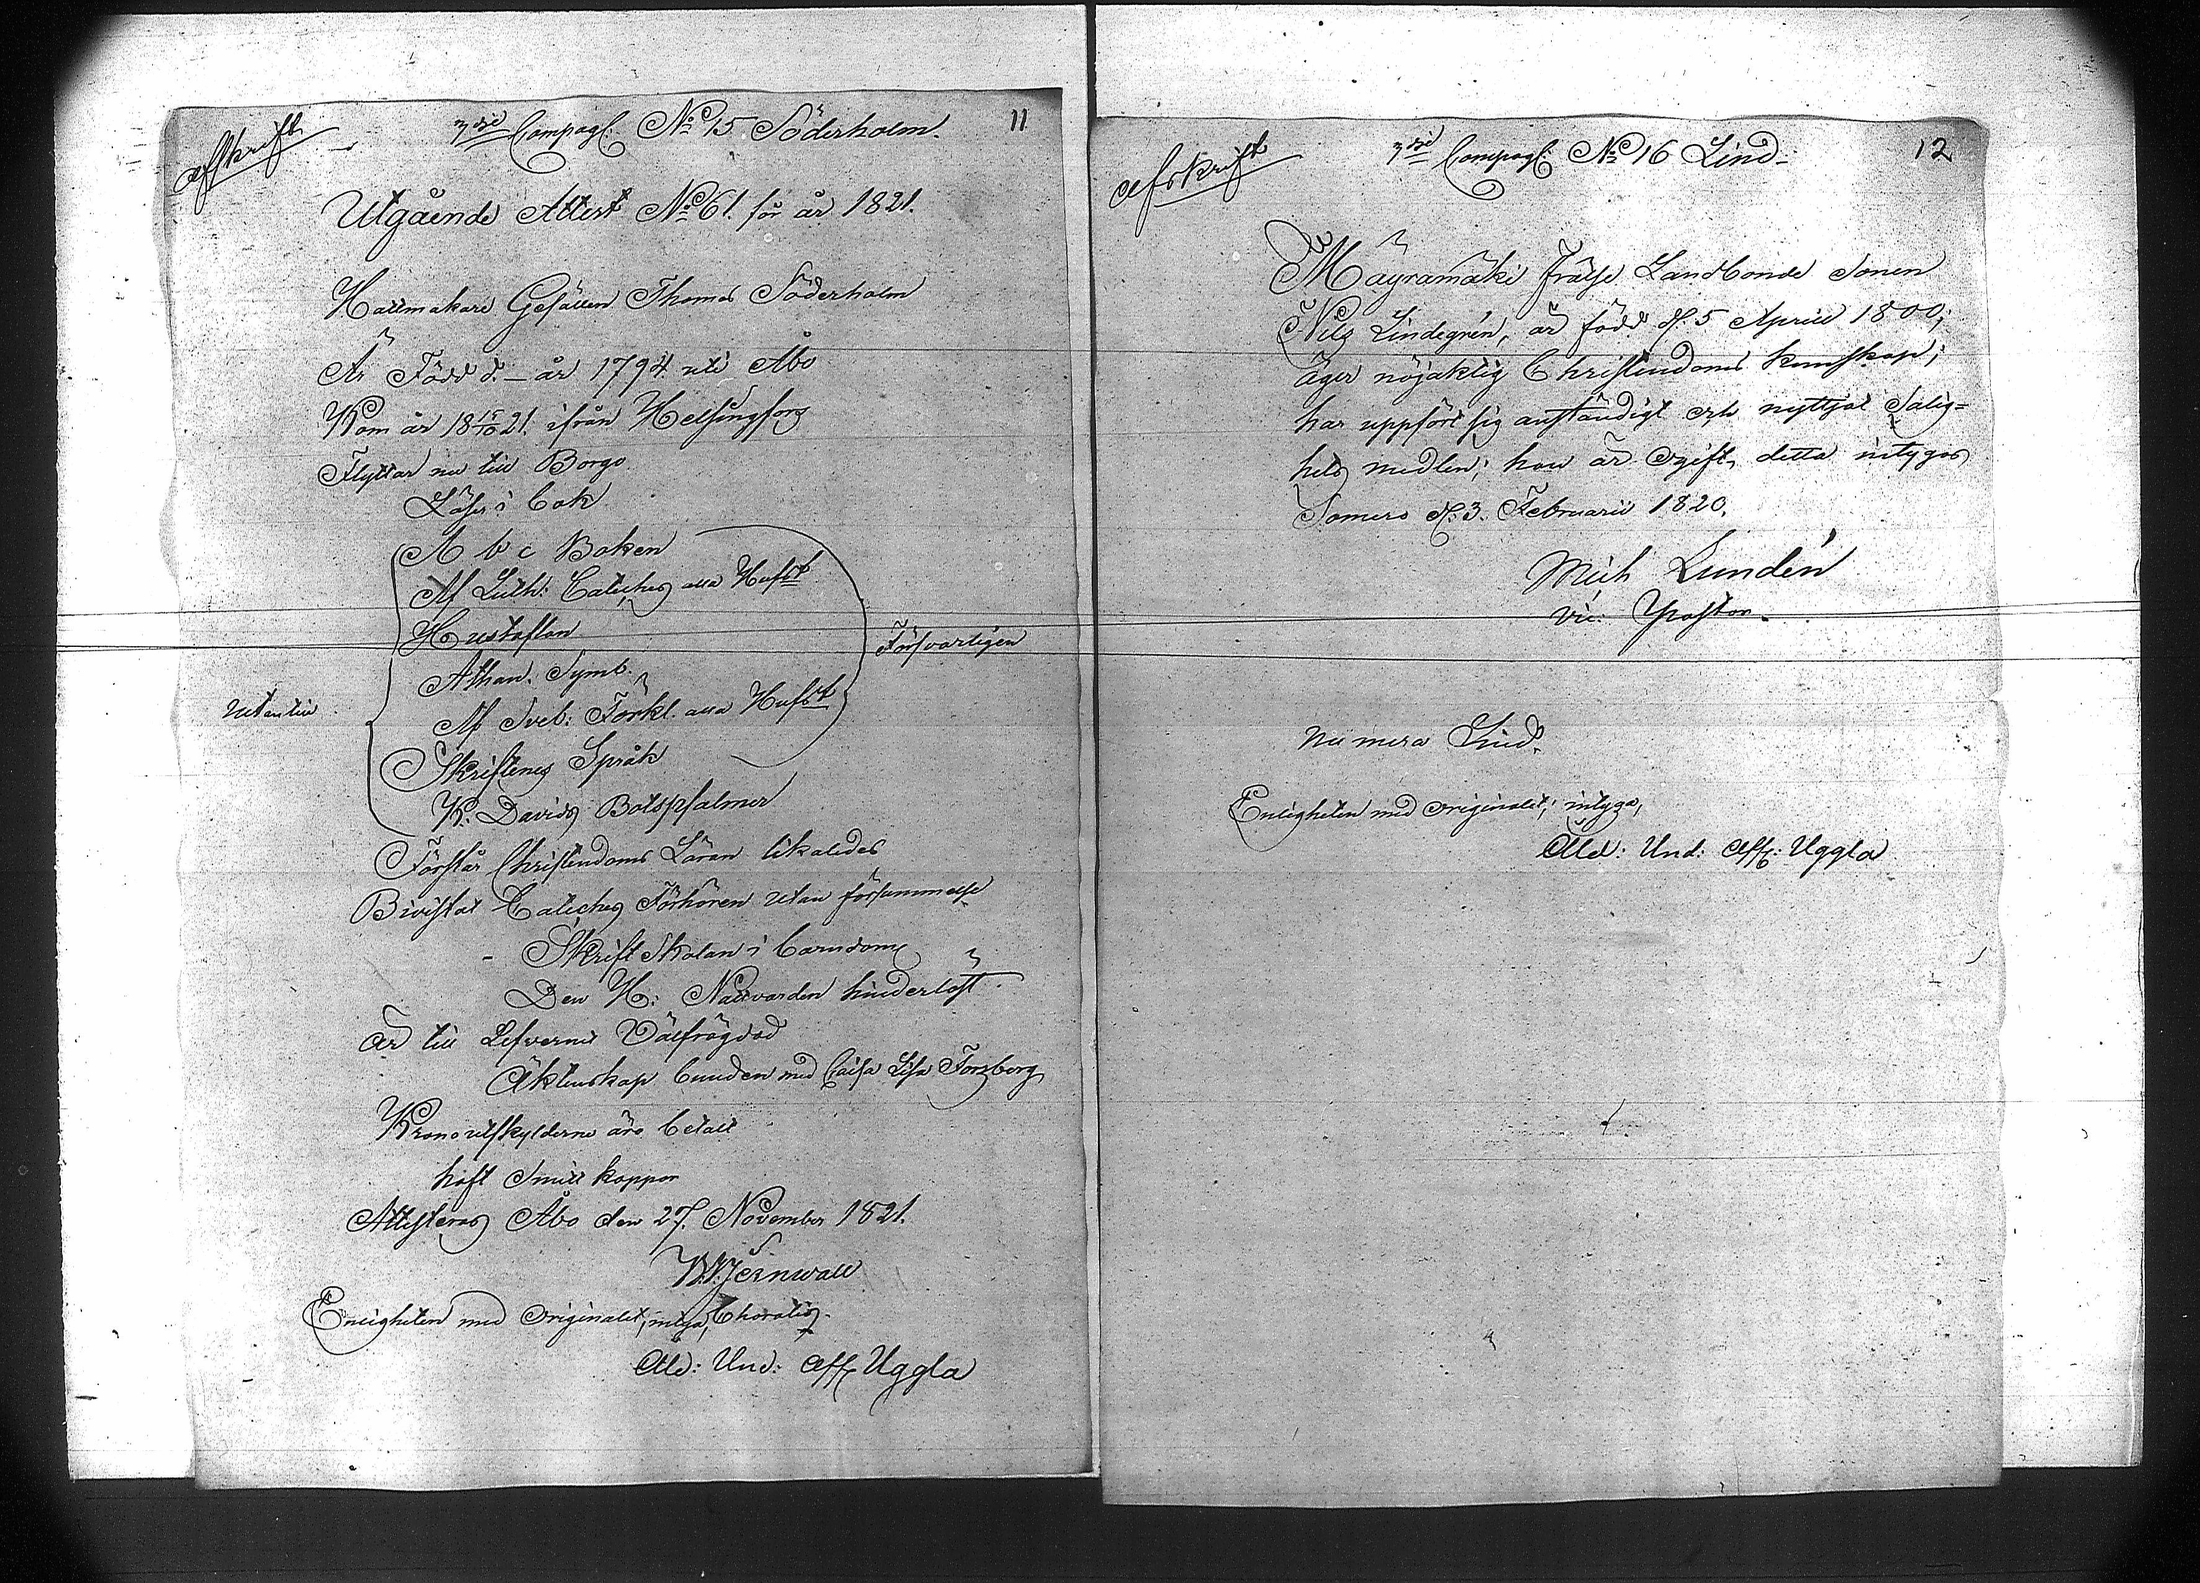 Afskrift
3dje Compagt: No 15 Söderholm.
11
Utgående Attest No 61. för år 1821.
Hattmakare Gesällen Thomas Söderholm
Är Född d. — år 1794 uti Åbo
Kom år 18 15/10 21. ifrån Helsingfors
Flyttar nu till Borgo
Läser i bok
A b c Boken
Af Luth: Cateches alla Hufst
Hustaflan
Athan. Symb.
Af Sveb: Förkl. alla Hufst
Försvarligen
Utantill
Skriftenes Språk
K. Davids Botspsalmer
Förstår Christendoms Läran likaledes
Bivistat Cateches Förhören utan försummelse
- Skrift Skolan i barndom
Den H: Nattvarden hinderlöst.
är till Lefvernet Välfrägdad
Äktenskap bunden med Caisa Lisa Forsberg
Krono utskylderne äro betalt
haft Smitt koppor
Attesteras Åbo den 27. November 1821.
Jernwall
Enligheten med Originalet, intyga,
Ald: Und: Off. Uggla
Afskrift
3dje Compagt: No 16 Lind
12
Mäyrämäki Frälse Landbonde Sonen
Nils Lindegrén, är född d. 5 Aprill 1800;
äger nöjaktig Christendoms kunskap;
har uppfört sig anständigt och nyttjat Salig=
hets medlen; han är ogift, detta intygas
Somero d. 3. Februarii 1820.
Mich Lundén
Vic: Pastor.
Nu mera Lind.
Enligheten med Originalet, intyga,
Ald: Und: Off: Uggla